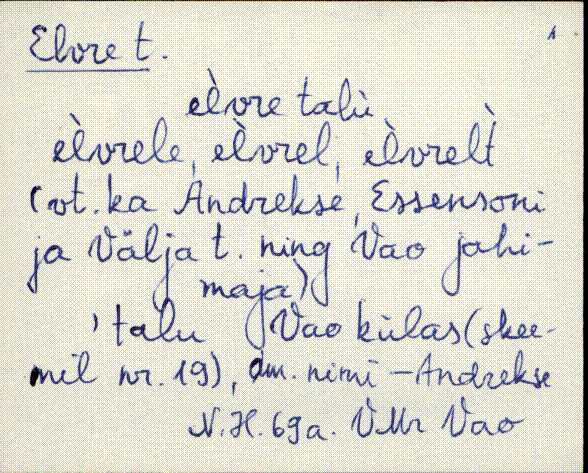 Elvre t.
èlvre talù
èlvrele, èlvrel, èlvrelt̀
(vt. ka Andrekse, Essensoni
ja Välja t. ning Vao jahi-
maja)
'talu Vao külas (skee-
mil nr. 19), nimi - Andrekse
N.H. 69a. VMr Vao